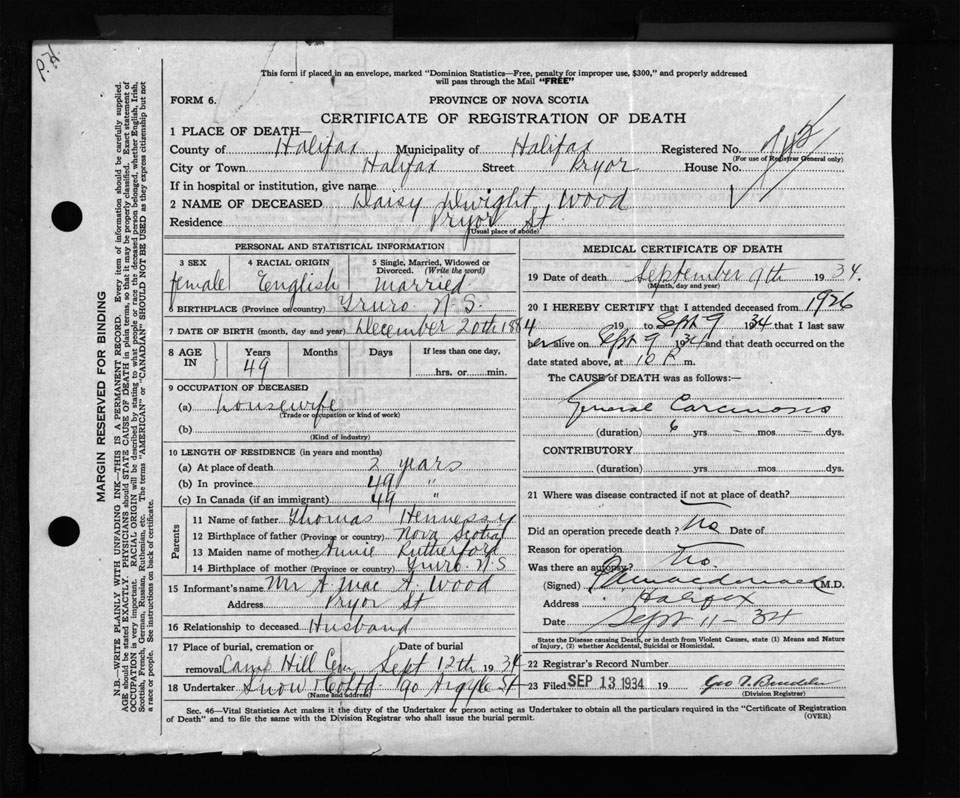 P.H.
This form if placed in an envelope, marked "Dominion Statistics—Free, penalty for improper use, $300," and properly addressed
will pass through the Mail "FREE"
FORM 6.
PROVINCE OF NOVA SCOTIA
CERTIFICATE OF REGISTRATION OF DEATH
1 PLACE OF DEATH—
County of Halifax Municipality of Halifax Registered No.
(For use of Registrar General only)
City or Town Halifax Street Pryor House No.
If in hospital or institution, give name
2 NAME OF DECEASED Daisy Dwight Wood
Residence Pryor St
(Usual place of abode)
PERSONAL AND STATISTICAL INFORMATION
3 SEX 4 RACIAL ORIGIN 5 Single, Married, Widowed or
Divorced. (Write the word)
female English married
6 BIRTHPLACE (Province or country) Truro N.S.
7 DATE OF BIRTH (month, day and year) December 20th 1884
8 AGE IN Years Months Days If less than one day,
49 hrs. or min.
9 OCCUPATION OF DECEASED
(a) housewife
(Trade or occupation or kind of work)
(b)
(Kind of industry)
10 LENGTH OF RESIDENCE (in years and months)
(a) At place of death 2 years
(b) In province 49 "
(c) In Canada (if an immigrant) 49 "
Parents
11 Name of father Thomas Hennessy
12 Birthplace of father (Province or country) Nova Scotia
13 Maiden name of mother Annie Rutherford
14 Birthplace of mother (Province or country) Truro N.S
15 Informant's name Mr A. Mac A. Wood
Address Pryor St
16 Relationship to deceased Husband
17 Place of burial, cremation or Date of burial
removal Camp Hill Cem Sept 12th 1934
18 Undertaker Snow & Co Ltd 90 Argyle St
(Name and address)
MEDICAL CERTIFICATE OF DEATH
19 Date of death September 9th 1934.
(Month, day and year)
20 I HEREBY CERTIFY that I attended deceased from 1926
19 to Sept 9 1934 that I last saw
her alive on Sept 9 1934 and that death occurred on the
date stated above, at 10 P. m.
The CAUSE of DEATH was as follows:
General Carcinosis
(duration) 6 yrs – mos – dys.
CONTRIBUTORY
(duration) yrs. mos. dys.
21 Where was disease contracted if not at place of death?
Did an operation precede death? No Date of
Reason for operation
Was there an autopsy? No.
(Signed) M.D.
Address Halifax
Date Sept 11 - 34
State the Disease causing Death, or in death from Violent Causes, state (1) Means and Nature
of Injury, (2) whether Accidental, Suicidal or Homicidal.
22 Registrar's Record Number
23 Filed SEP 13 1934 19 Geo
(Division Registrar)
Sec. 46—Vital Statistics Act makes it the duty of the Undertaker or person acting as Undertaker to obtain all the particulars required in the "Certificate of Registration
of Death" and to file the same with the Division Registrar who shall issue the burial permit. (OVER)
MARGIN RESERVED FOR BINDING
N.B.—WRITE PLAINLY WITH UNFADING INK—THIS IS A PERMANENT RECORD. Every item of information should be carefully supplied.
AGE should be stated EXACTLY. PHYSICIANS should STATE CAUSE OF DEATH in plain terms, so that it may be properly classified. Exact statement of
OCCUPATION is very important. RACIAL ORIGIN will be described by stating to what people or race the deceased person belonged, whether English, Irish,
Scottish, French, German, Russian, Ruthenian, etc. The terms "AMERICAN" or "CANADIAN" SHOULD NOT BE USED as they express citizenship but not
a race or people. See instructions on back of certificate.